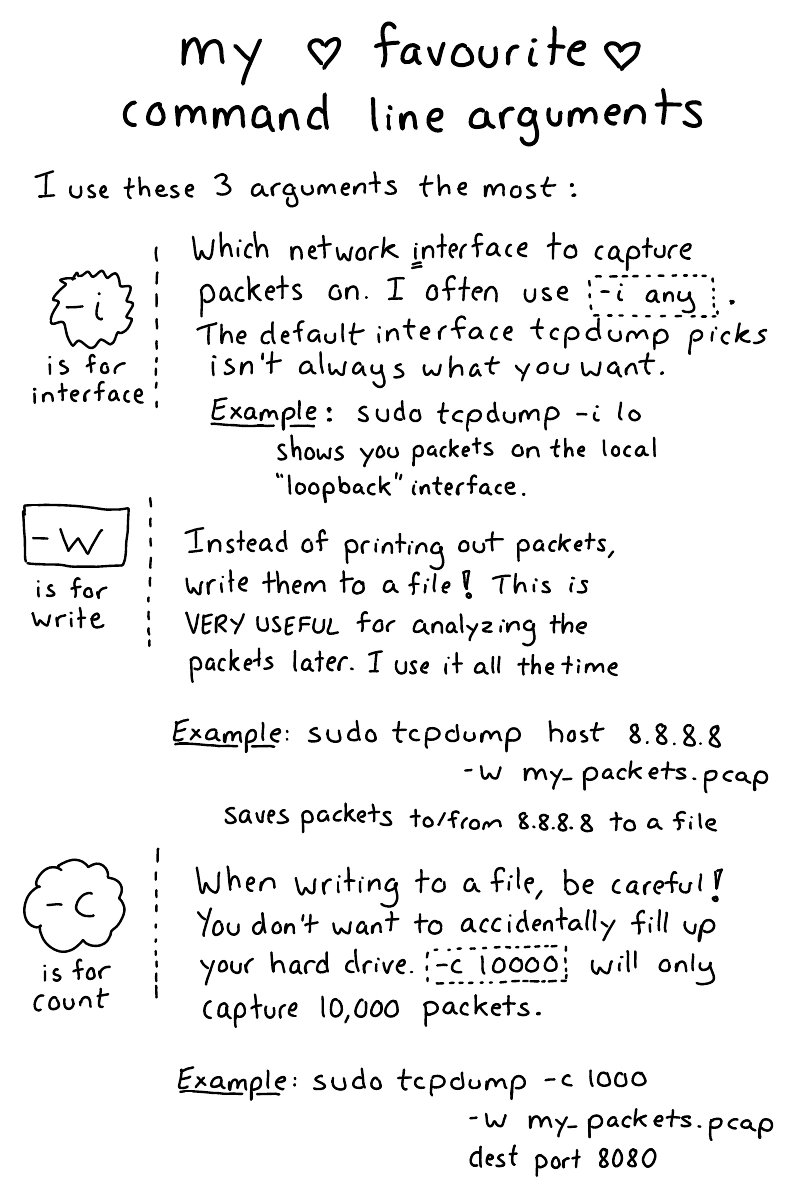 my ♡ favourite ♡
command line arguments
I use these 3 arguments the most:
-i
is for
interface
Which network interface to capture
packets on. I often use -i any.
The default interface tcpdump picks
isn't always what you want.
Example: sudo tcpdump -i lo
shows you packets on the local
"loopback" interface.
-w
is for
write
Instead of printing out packets,
write them to a file! This is
VERY USEFUL for analyzing the
packets later. I use it all the time
Example: sudo tcpdump host 8.8.8.8
-w my_packets.pcap
saves packets to/from 8.8.8.8 to a file
-c
is for
count
When writing to a file, be careful!
You don't want to accidentally fill up
your hard drive. -c 10000 will only
capture 10,000 packets.
Example: sudo tcpdump -c 1000
-w my_packets.pcap
dest port 8080